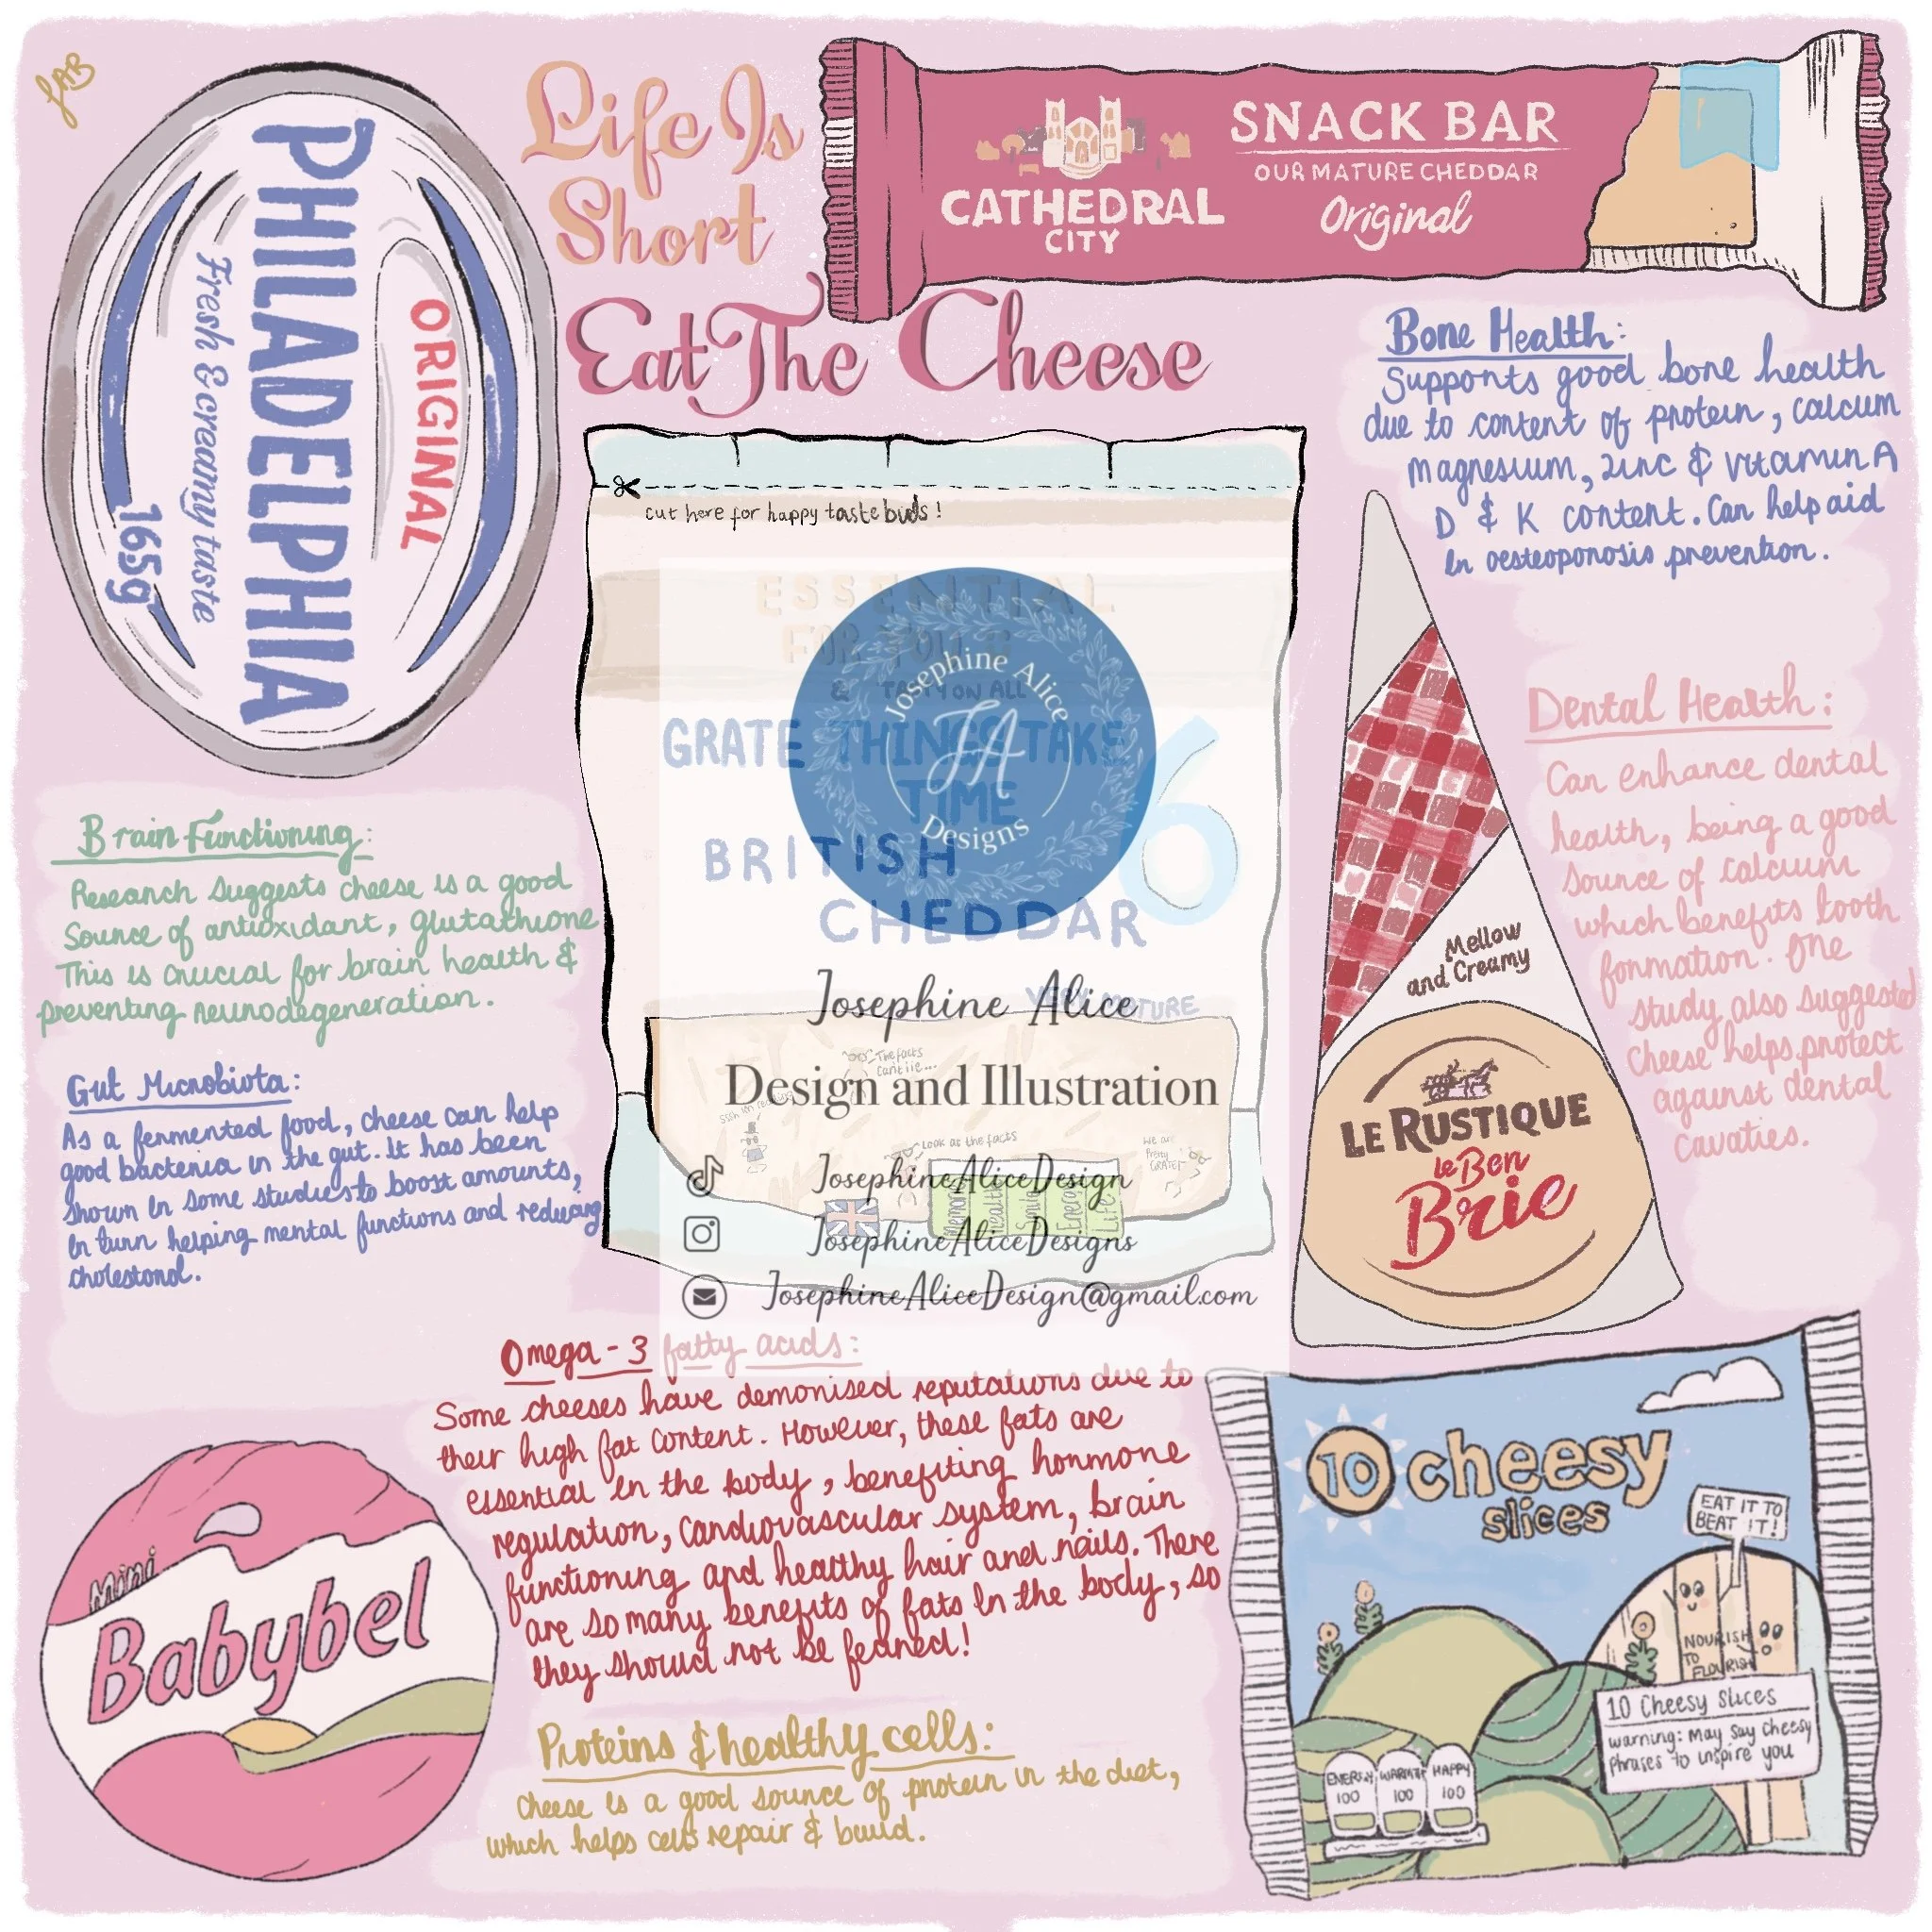 JAB
Life Is
Short
Eat The Cheese
PHILADELPHIA
ORIGINAL
Fresh & creamy taste
165g
CATHEDRAL
CITY
SNACK BAR
OUR MATURE CHEDDAR
Original
Bone Health:
Supports good bone health
due to content of protein, calcum
magnesium, zinc & vitamin A
D & K content. Can help aid
in oesteoporosis prevention.
cut here for happy taste buds!
ESSENTIAL
FOR YOU
& TASTY ON ALL
GRATE THINGS TAKE
TIME
BRITISH
CHEDDAR
6
VERY MATURE
Josephine Alice
JA
Designs
Josephine Alice
Design and Illustration
The facts
cant lie...
Look as the facts
we are
Pretty
GRATE!
Memory
Health
Smile
Energy
Life
JosephineAliceDesign
JosephineAliceDesigns
JosephineAliceDesign@gmail.com
Dental Health:
Can enhance dental
health, being a good
source of calcium
which benefits tooth
formation. One
study also suggested
Cheese helps protect
against dental
cavaties.
Mellow
and Creamy
LE RUSTIQUE
le Bon
Brie
Brain Functioning:
Research suggests cheese is a good
source of antioxidant, glutathione
This is crucial for brain health &
preventing neurodegeneration.
Gut Microbiota:
As a fermented food, cheese can help
good bacteria in the gut. It has been
shown in some studies to boost amounts,
in turn helping mental functions and reducing
cholestorol.
Omega-3 fatty acids:
Some cheeses have demonised reputations due to
their high fat content. However, these fats are
essential in the body, benefiting hormone
regulation, cardiovascular system, brain
functioning and healthy hair and nails. There
are so many benefits of fats in the body, so
they should not be feared!
Proteins & healthy cells:
cheese is a good source of protein in the diet,
which helps cells repair & build.
Mini
Babybel
10 cheesy
slices
EAT IT TO
BEAT IT!
NOURISH
TO
FLOURISH
10 Cheesy Slices
warning: May say cheesy
phrases to inspire you
ENERGY
100
WARMTH
100
HAPPY
100